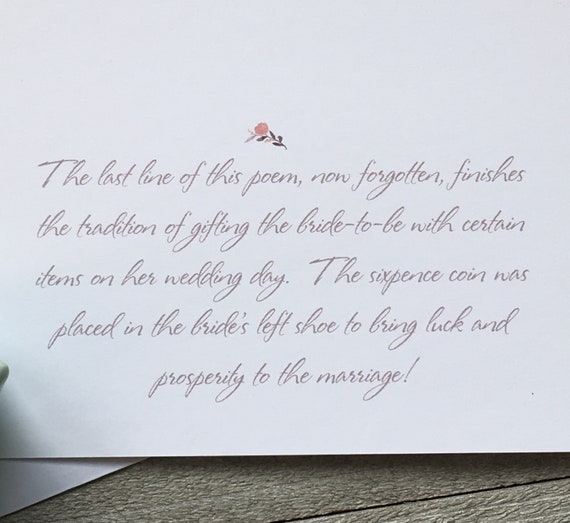 The last line of this poem, now forgotten, finishes
the tradition of gifting the bride-to-be with certain
items on her wedding day. The sixpence coin was
placed in the bride's left shoe to bring luck and
prosperity to the marriage!